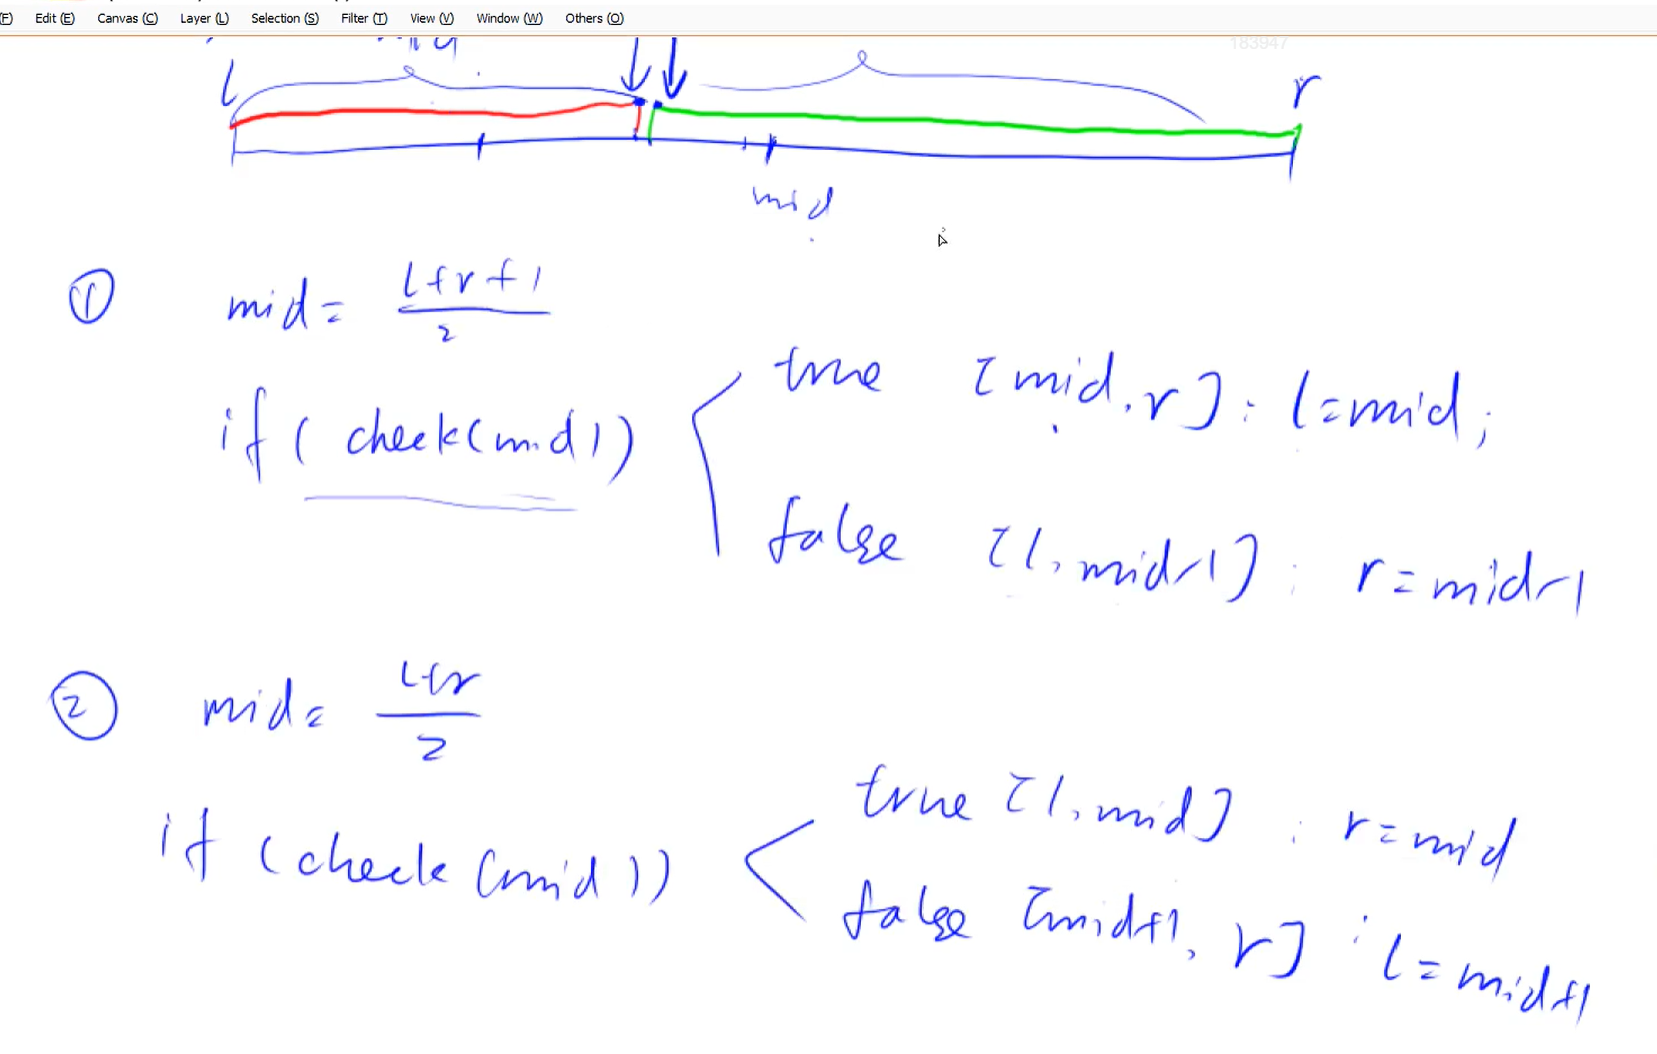 (F) Edit (E) Canvas (C) Layer (L) Selection (S) Filter (T) View (V) Window (W) Others (O)
183947
l r
mid
① mid = l+r+1
2
if ( check(mid))
true [mid, r] : l=mid;
false [l, mid-1] : r=mid-1
② mid = l+r
2
if (check (mid))
true [l, mid] : r=mid
false [mid+1, r] : l=mid+1